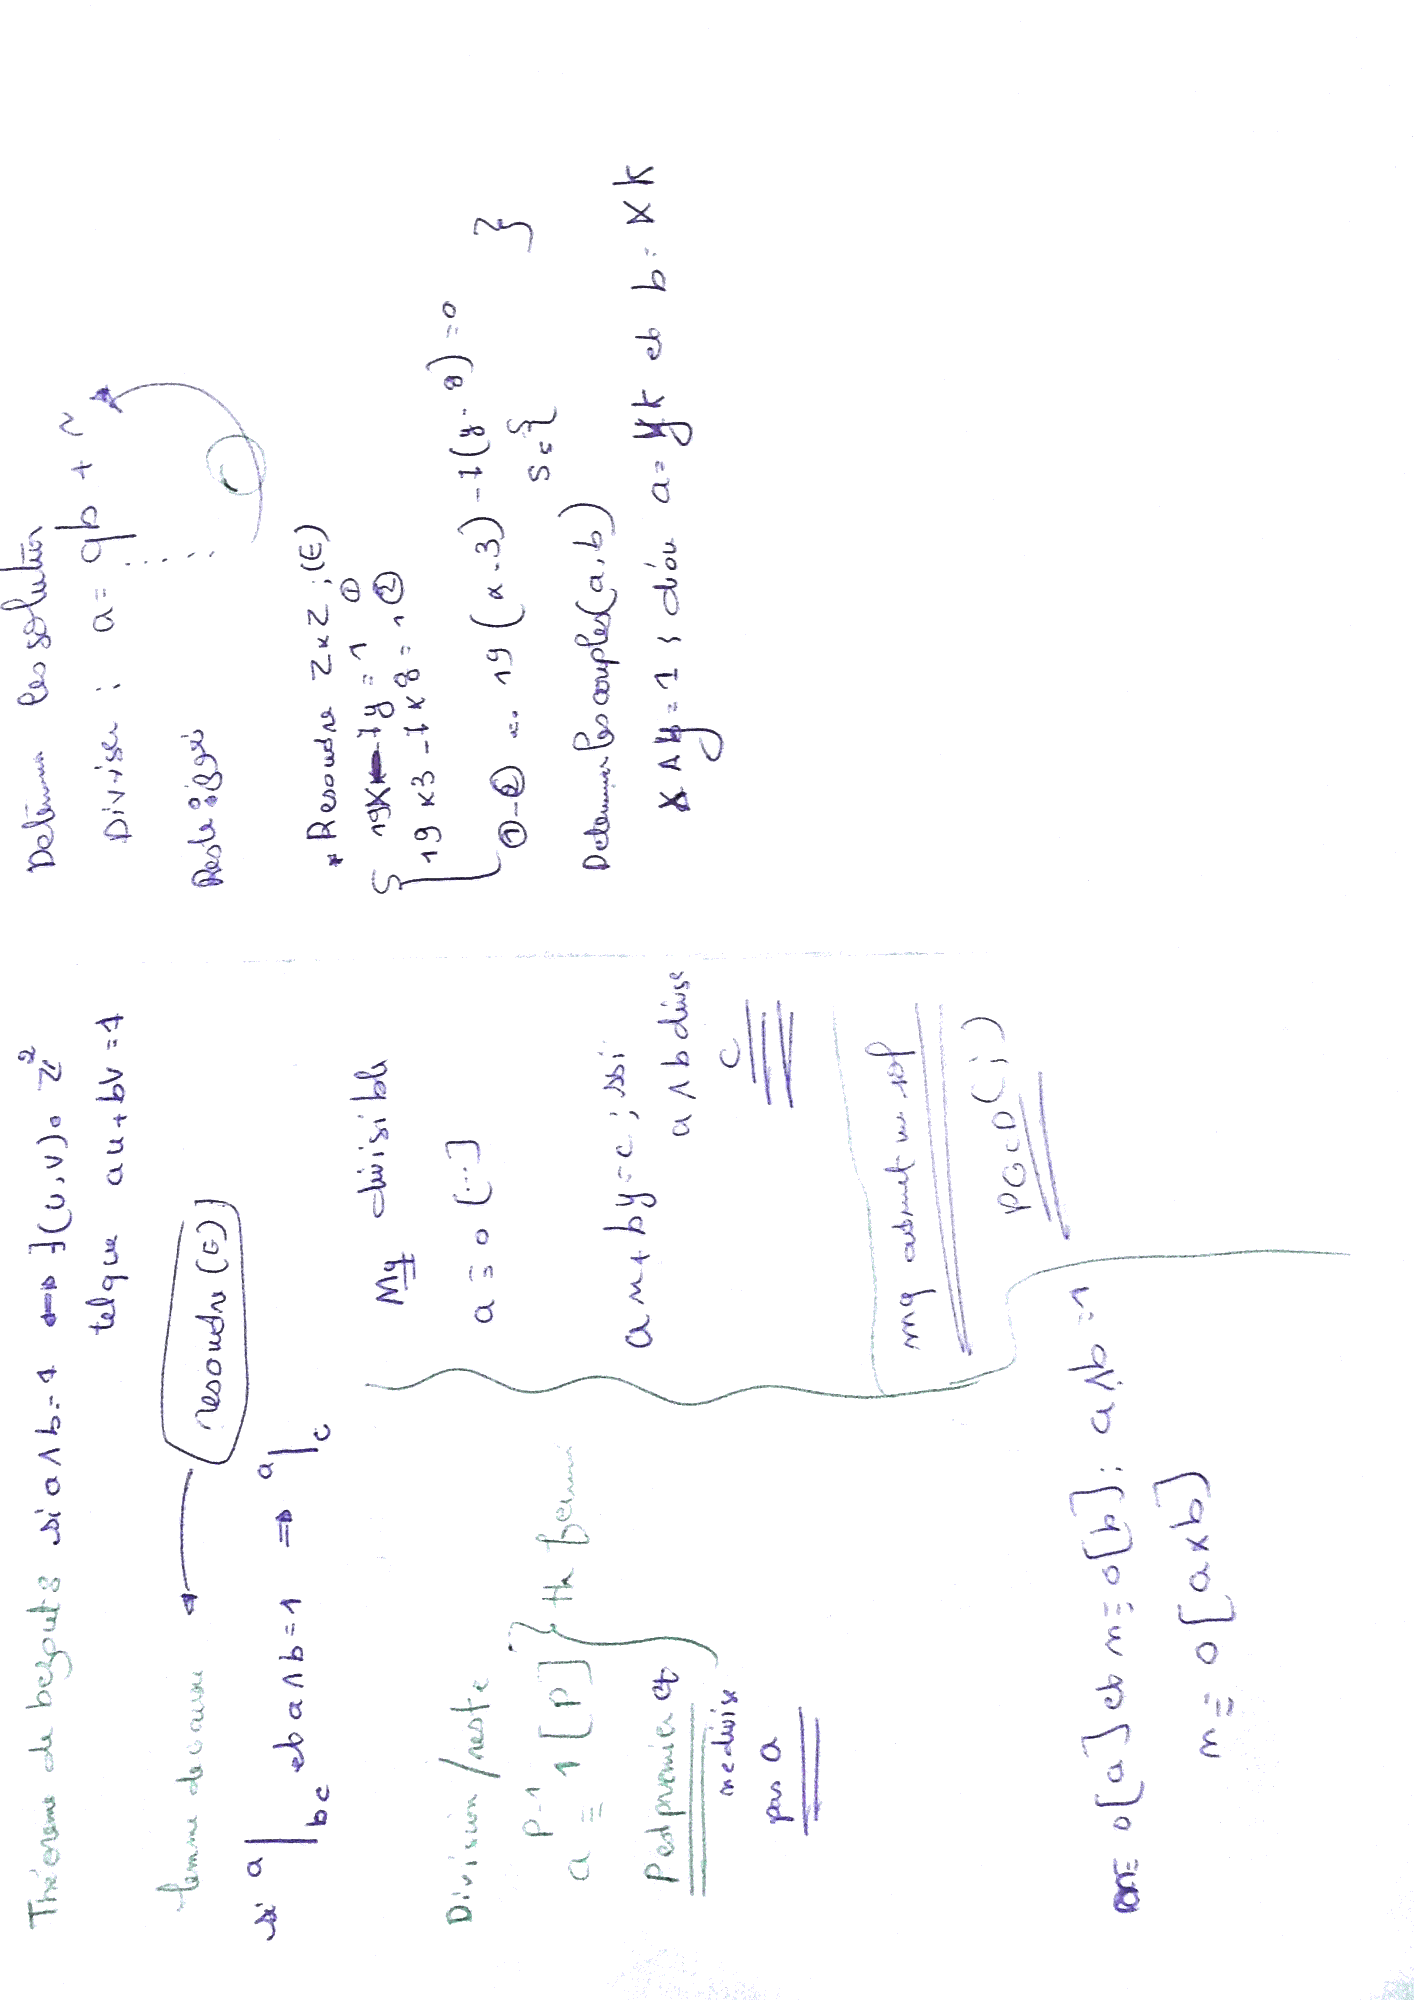 Théoreme de bezout : si a∧b=1 ⟺ ∃(u,v)∘ Z²
tel que au+bv=1
lemme de Gauss ← resoudre (E)
si a|bc et a∧b=1 ⇒ a|c
Division/reste
a^(P-1) ≡ 1 [P] } th
P est premier et
ne divise
pas a
Mq divisible
a ≡ 0 [...]
ax+by=c ; ssi
a∧b divise
c
mq admet
PGCD( ; )
n≡0[a] et n≡0[b] ; a∧b=1
n≡0[a×b]
les solution
Diviser : a= qb + r
Reste :
* Resoudre Z×Z ; (E)
19x-7y=1 ①
19×3-7×8=1 ②
①-② = 19(x-3)-7(y-8)=0
S={ }
Determiner les couples (a,b)
x∧y=1 ; d'où a=yk et b=xk